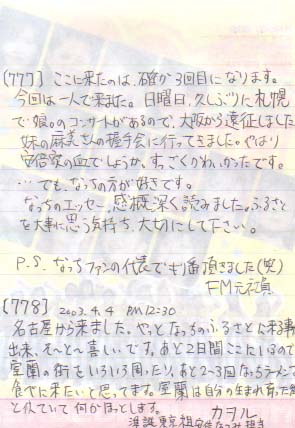 [777] ここに来たのは、確か3回目になります。
今回は一人で来ました。日曜日、久しぶりに札幌
で娘。のコンサートがあるので、大阪から遠征しました
妹の麻美さんの握手会に行ってきました。やはり
安倍家の血でしょうか、すっごくかわいかったです。
…でも、なっちの方が好きです。
なっちのエッセー、感慨深く読みました。ふるさと
を大事に思う気持ち、大切にして下さい。
P.S. なっちファンの代表でキリ番頂きました(笑)
FM元禎
[778] 2003.4.4 PM12:30
名古屋から来ました。やっとなっちのふるさとに来る事
出来、そ〜と〜喜しいです。あと2日間ここにいるので
室蘭の街をいろいろ周ったり、あと2〜3回なっちラーメン
食べに来たいと思ってます。室蘭は自分の生まれ育った
と似ていて何かほっとします。 カヲル
東京組 安倍なつみ担当